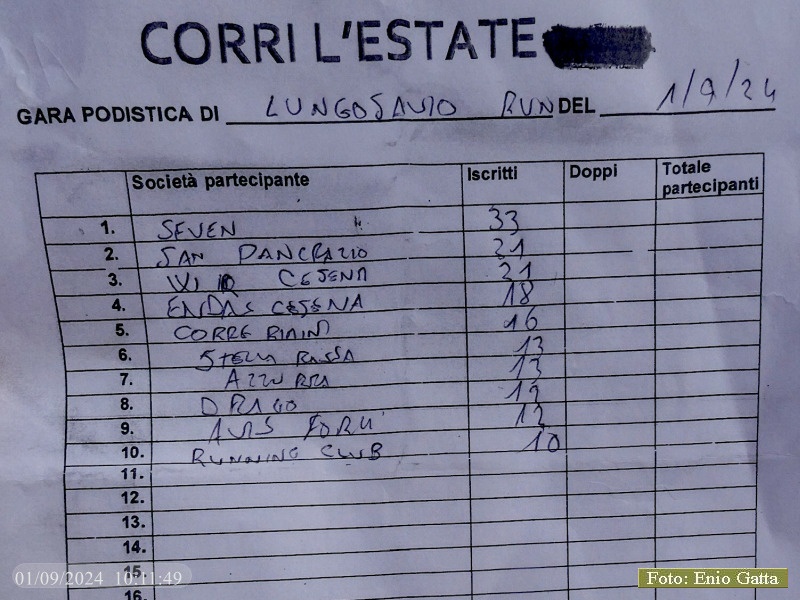 CORRI L'ESTATE
GARA PODISTICA DI LUNGOSAVIO RUN DEL 1/9/24
Società partecipante Iscritti Doppi Totale partecipanti
1. SEVEN 33
2. SAN PANCRAZIO 21
3. CESENA 21
4. ENDAS CESENA 18
5. CORRE 16
6. STELLA ROSSA 13
7. AZZURRA 13
8. DRAGO
9. AVIS FORLI' 12
10. RUNNING CLUB 10
11.
12.
13.
14.
15.
16.
01/09/2024 10:11:49
Foto: Enio Gatta